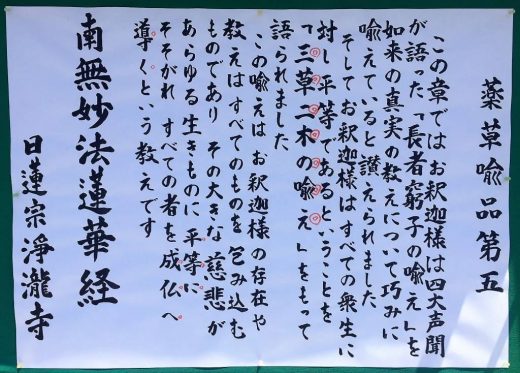 薬草喩品第五
この章では お釈迦様は四大声聞
が語った「長者窮子の喩え」を
如来の真実の教えについて巧みに
喩えていると讃えられました
そしてお釈迦様はすべての衆生に
対し平等であるということを
「三草二木の喩え」をもって
語られました
この喩えは お釈迦様の存在や
教えはすべてのものを包み込む
ものであり その大きな慈悲が
あらゆる生きものに平等に
そそがれ すべての者を成仏へ
導くという教えです
南無妙法蓮華経
日蓮宗浄瀧寺